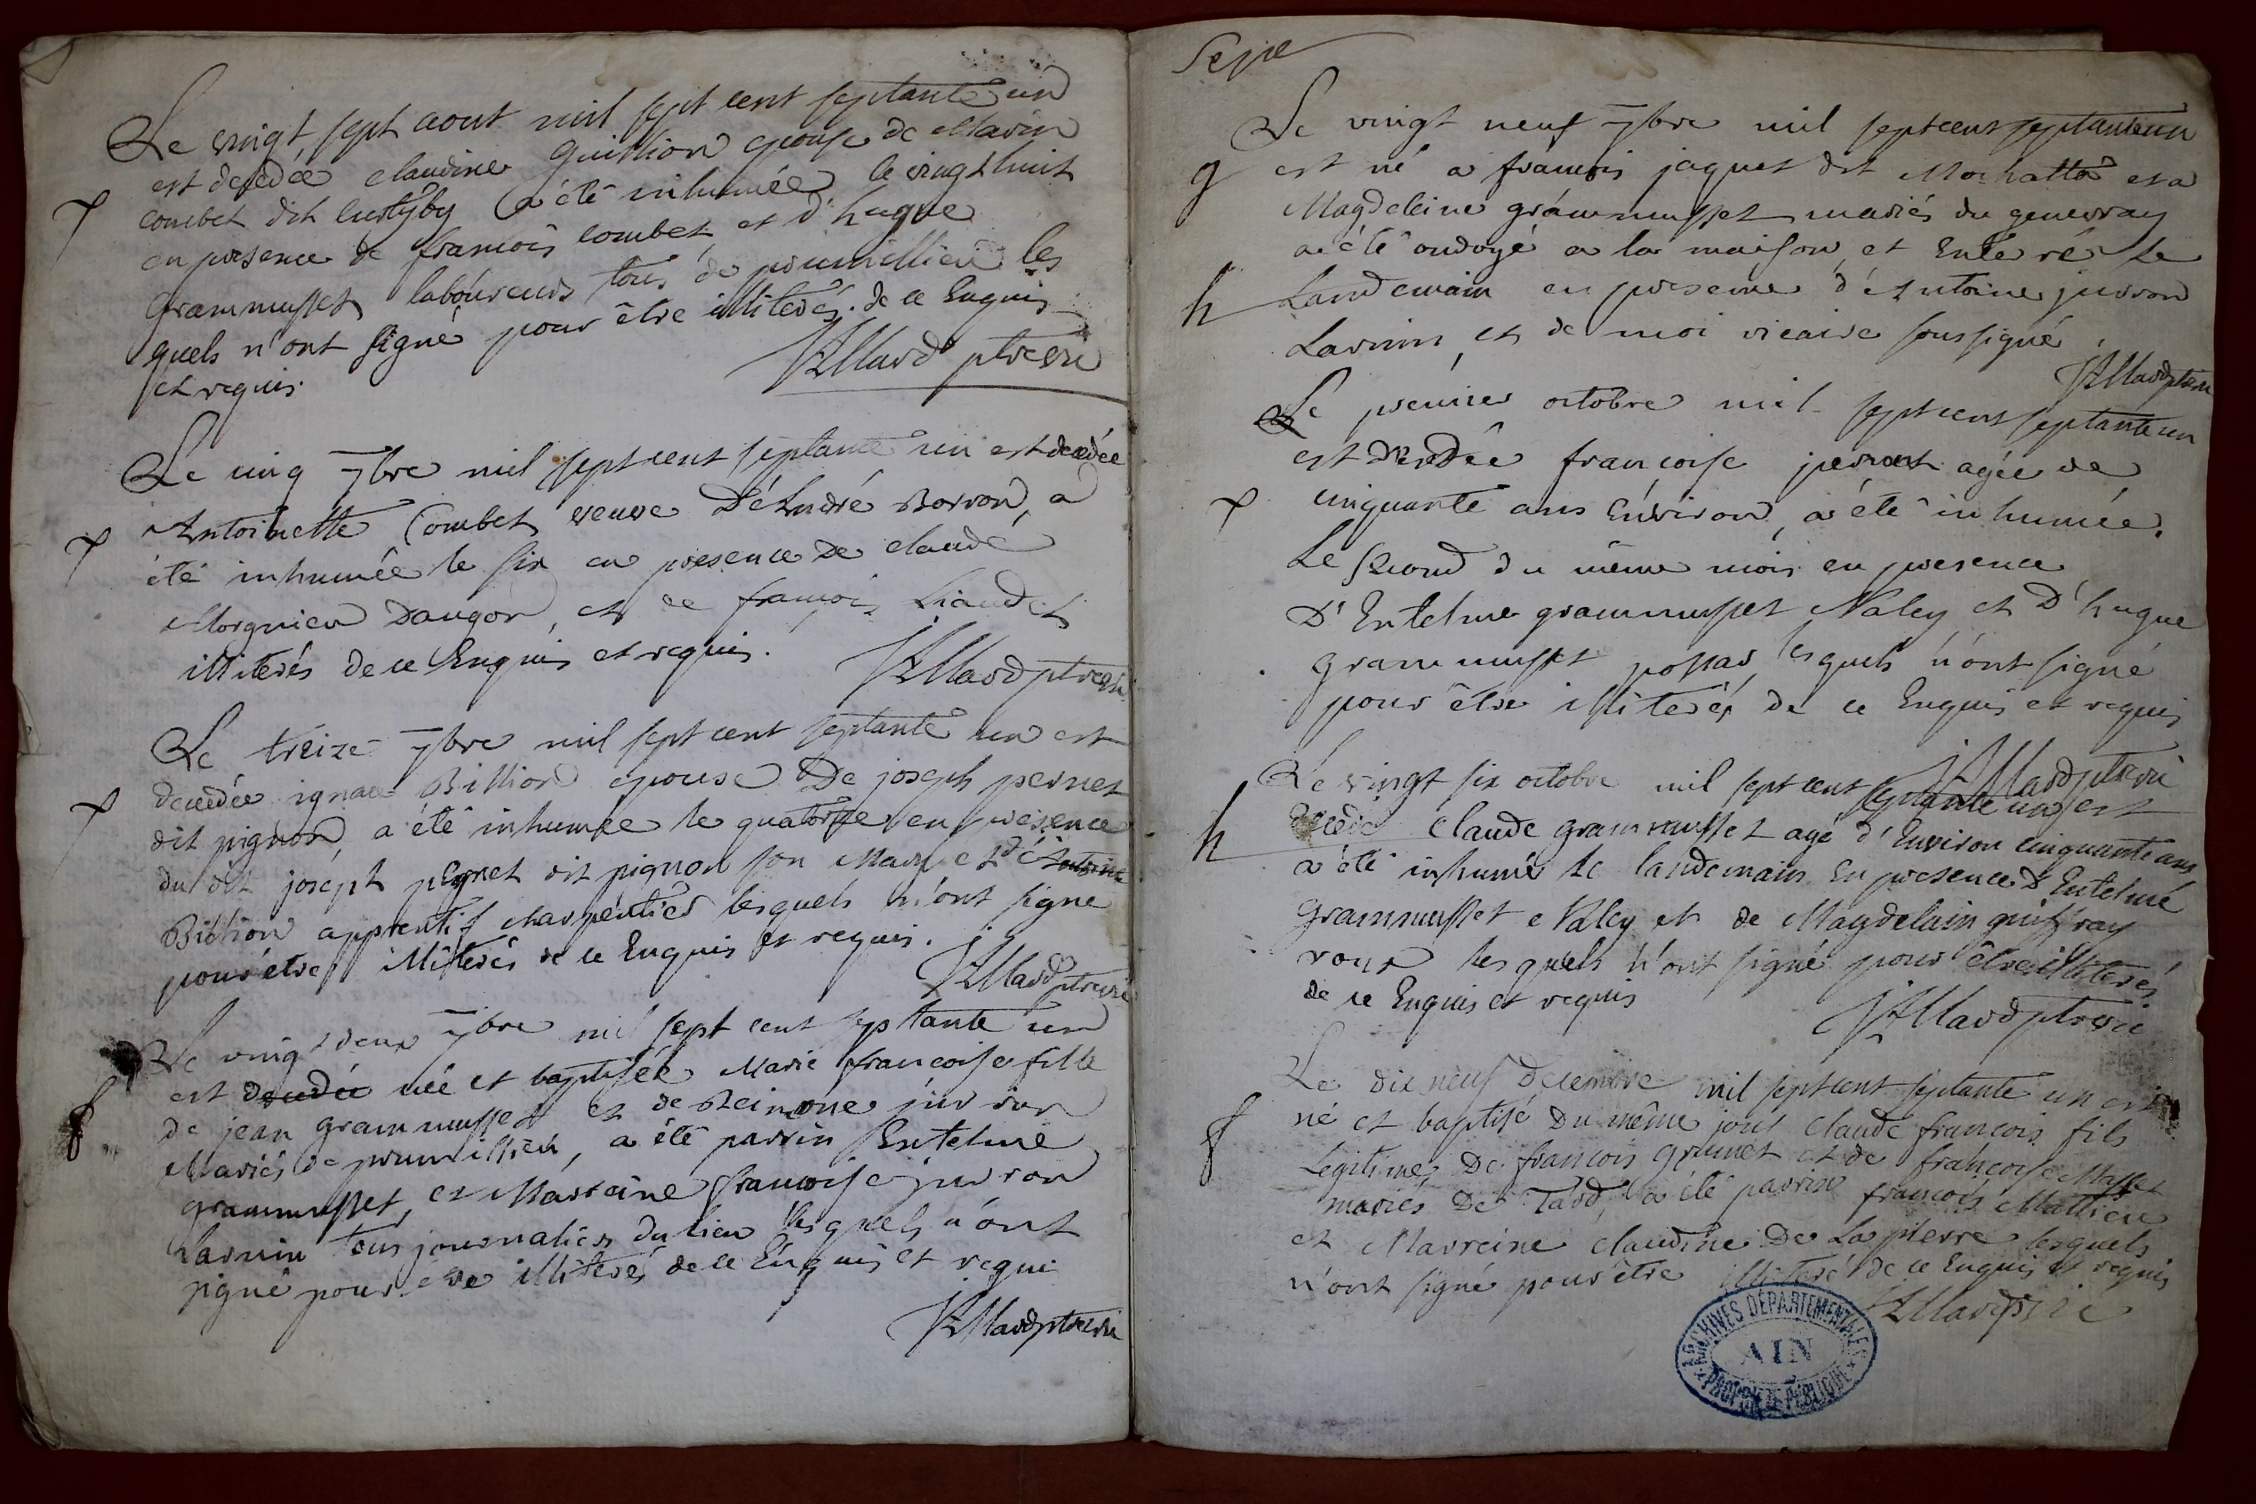 Le vingt sept aout mil sept cent septante un
est decedée claudine Guillion epouse de Marin
combet dit a été inhumée le vingt huit
en presence de francois combet et d'hugue
grammusset laboureurs tous de premillieu les
quels n'ont signé pour être illiterés de ce Enquis
et requis.
Allard ptre vic
Le cinq 7bre mil sept cent septante un est decedée
Antoinette Combet veuve D'André Borron, a
été inhumée le six en presence de claude
Morgnieu Daugon, et de francois
illiterés de ce Enquis et requis.
Allard ptre vic
Le treize 7bre mil sept cent septante un est
decedée ignace Billion epouse De joseph pernet
dit pignon, a été inhumée le quatorze en presence
du dit joseph pernet dit pignon son Mary et d'Antoine
Billion apprentif charpentier lesquels n'ont signé
pour être illiterés de ce Enquis et requis.
Allard ptre vic
Le vingt deux 7bre mil sept cent septante un
est decedée née et baptisée Marie francoise fille
de jean grammusset et de juvron
Mariés de premillieu, a été parrin Entelme
grammusset, et Marreine francoise juvron
Larnin tous journaliers du lieu lesquels n'ont
signé pour être illiterés de ce Enquis et requi
Allard ptre vic
Le vingt neuf 7bre mil sept cent septante un
g est né a francois jaquet dit et a
Magdeleine grammusset mariés du genevray
a été ondoyé a la maison, et Enterré Le
h Landemain en presence d'Antoine juvron
Larnin, et de moi vicaire soussigné
Allard ptre vic
Le premier octobre mil sept cent septante un
est decedée francoise pernet agée de
cinquante ans Environ, a été inhumée
Le second du même mois en presence
D'Entelme grammusset Naley et D'hugue
grammusset possar, lesquels n'ont signé
pour être illiterés de ce Enquis et requis
Allard ptre vic
Le vingt six octobre mil sept cent septante un est
h decedé Claude grammusset agé d'Environ cinquante ans
a été inhumé le landemain En presence d'Entelme
grammusset Naley et de Magdelain guiffray
roux lesquels n'ont signé pour être illiterés
de ce Enquis et requis
Allard ptre vic
Le dix neuf Decembre mil sept cent septante un est
né et baptisé Du même jour Claude francois fils
Légitime De francois grumet et de francoise Masset
mariés De Tard, a été parrin francois Mattieu
et Marreine claudine De Lapierre lesquels
n'ont signé pour être illiteré de ce Enquis et requis
Allard
ARCHIVES DÉPARTEMENTALES
AIN
PROPRIÉTÉ PUBLIQUE